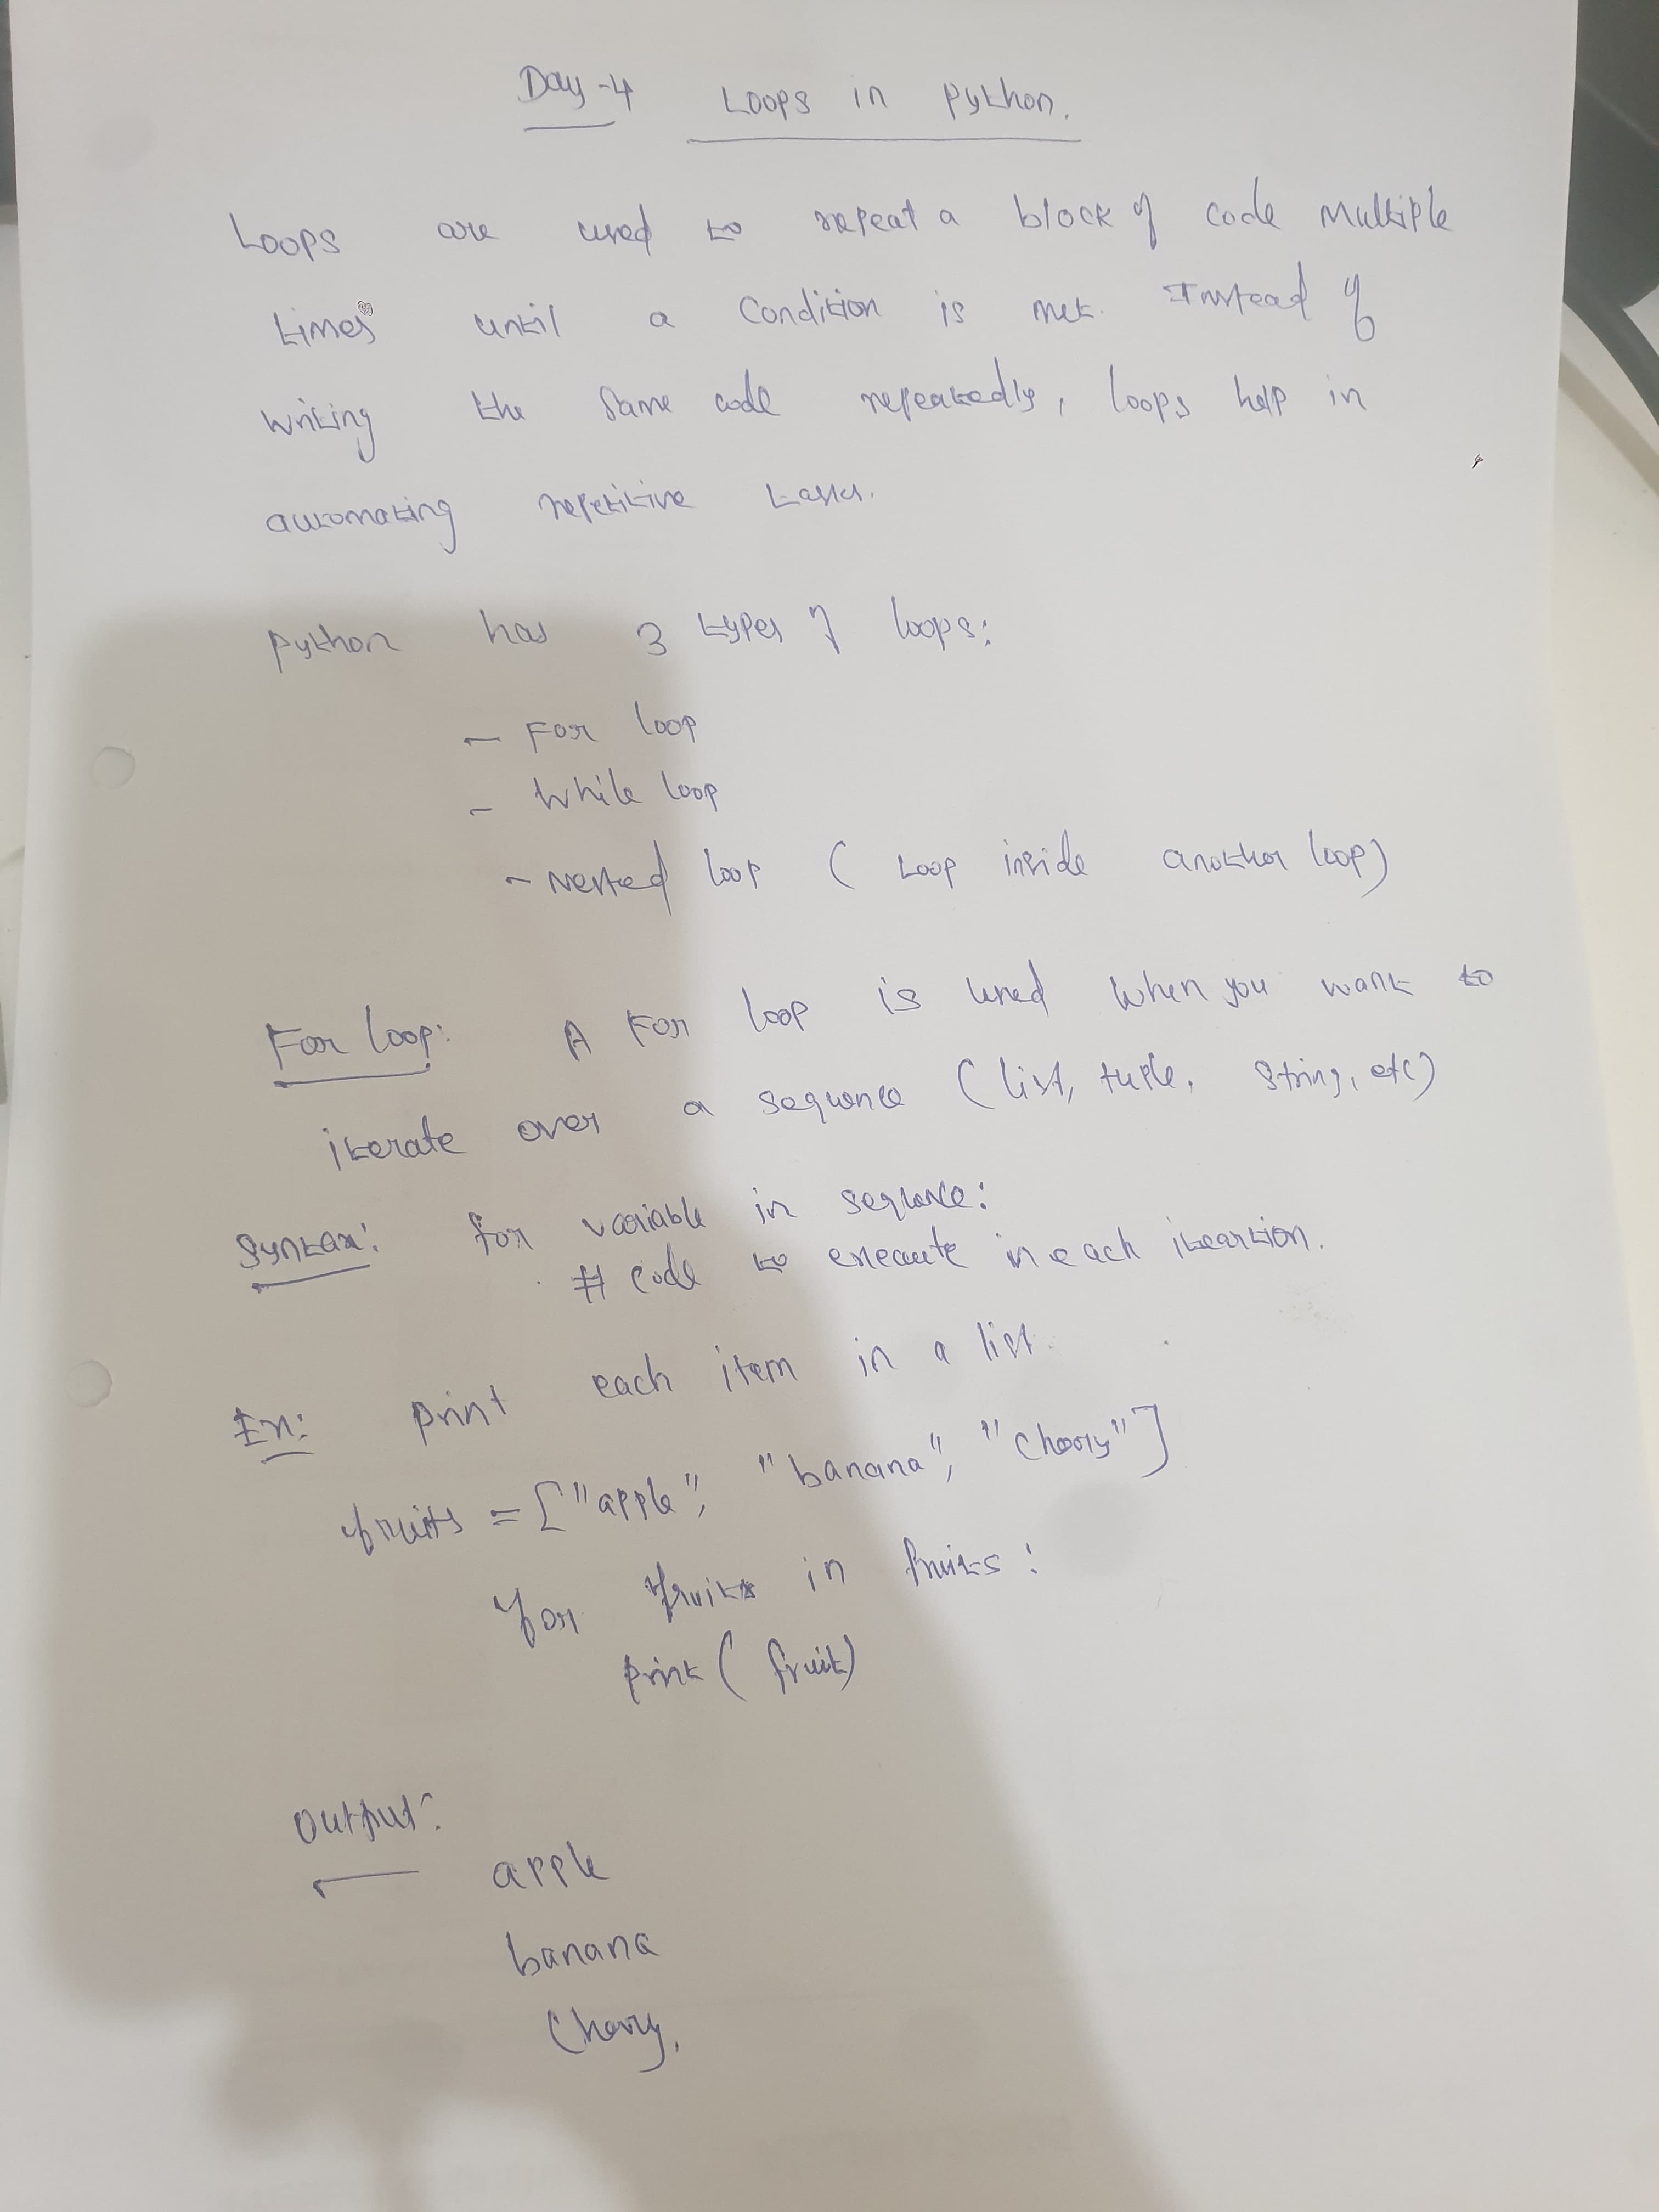 Day-4 Loops in python.
Loops are used to repeat a block of code multiple
times until a condition is met. Instead of
writing the same code repeatedly, loops help in
automating repetitive tasks.
python has 3 types of loops:
- For loop
- While loop
- Nested loop ( Loop inside another loop)
For loop: A For loop is used when you want to
iterate over a sequence (list, tuple, string, etc)
Syntax: for variable in sequence:
# code to execute in each iteartion.
Ex: print each item in a list.
fruits = ["apple", "banana", "Cherry"]
for fruit in fruits:
print( fruit)
Output:
apple
banana
Cherry.